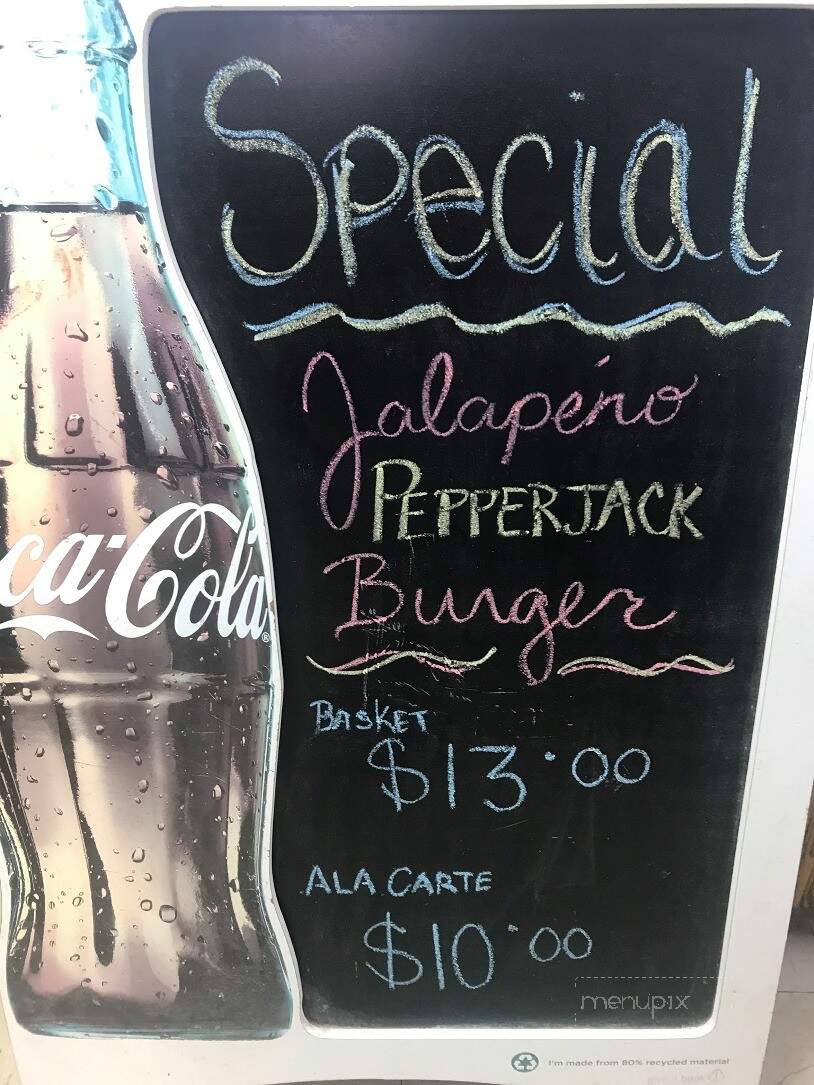 Special
Jalapeño
PEPPERJACK
Burger
BASKET
$13.00
ALA CARTE
$10.00
ca-Cola®
menupix
I'm made from 80% recycled material